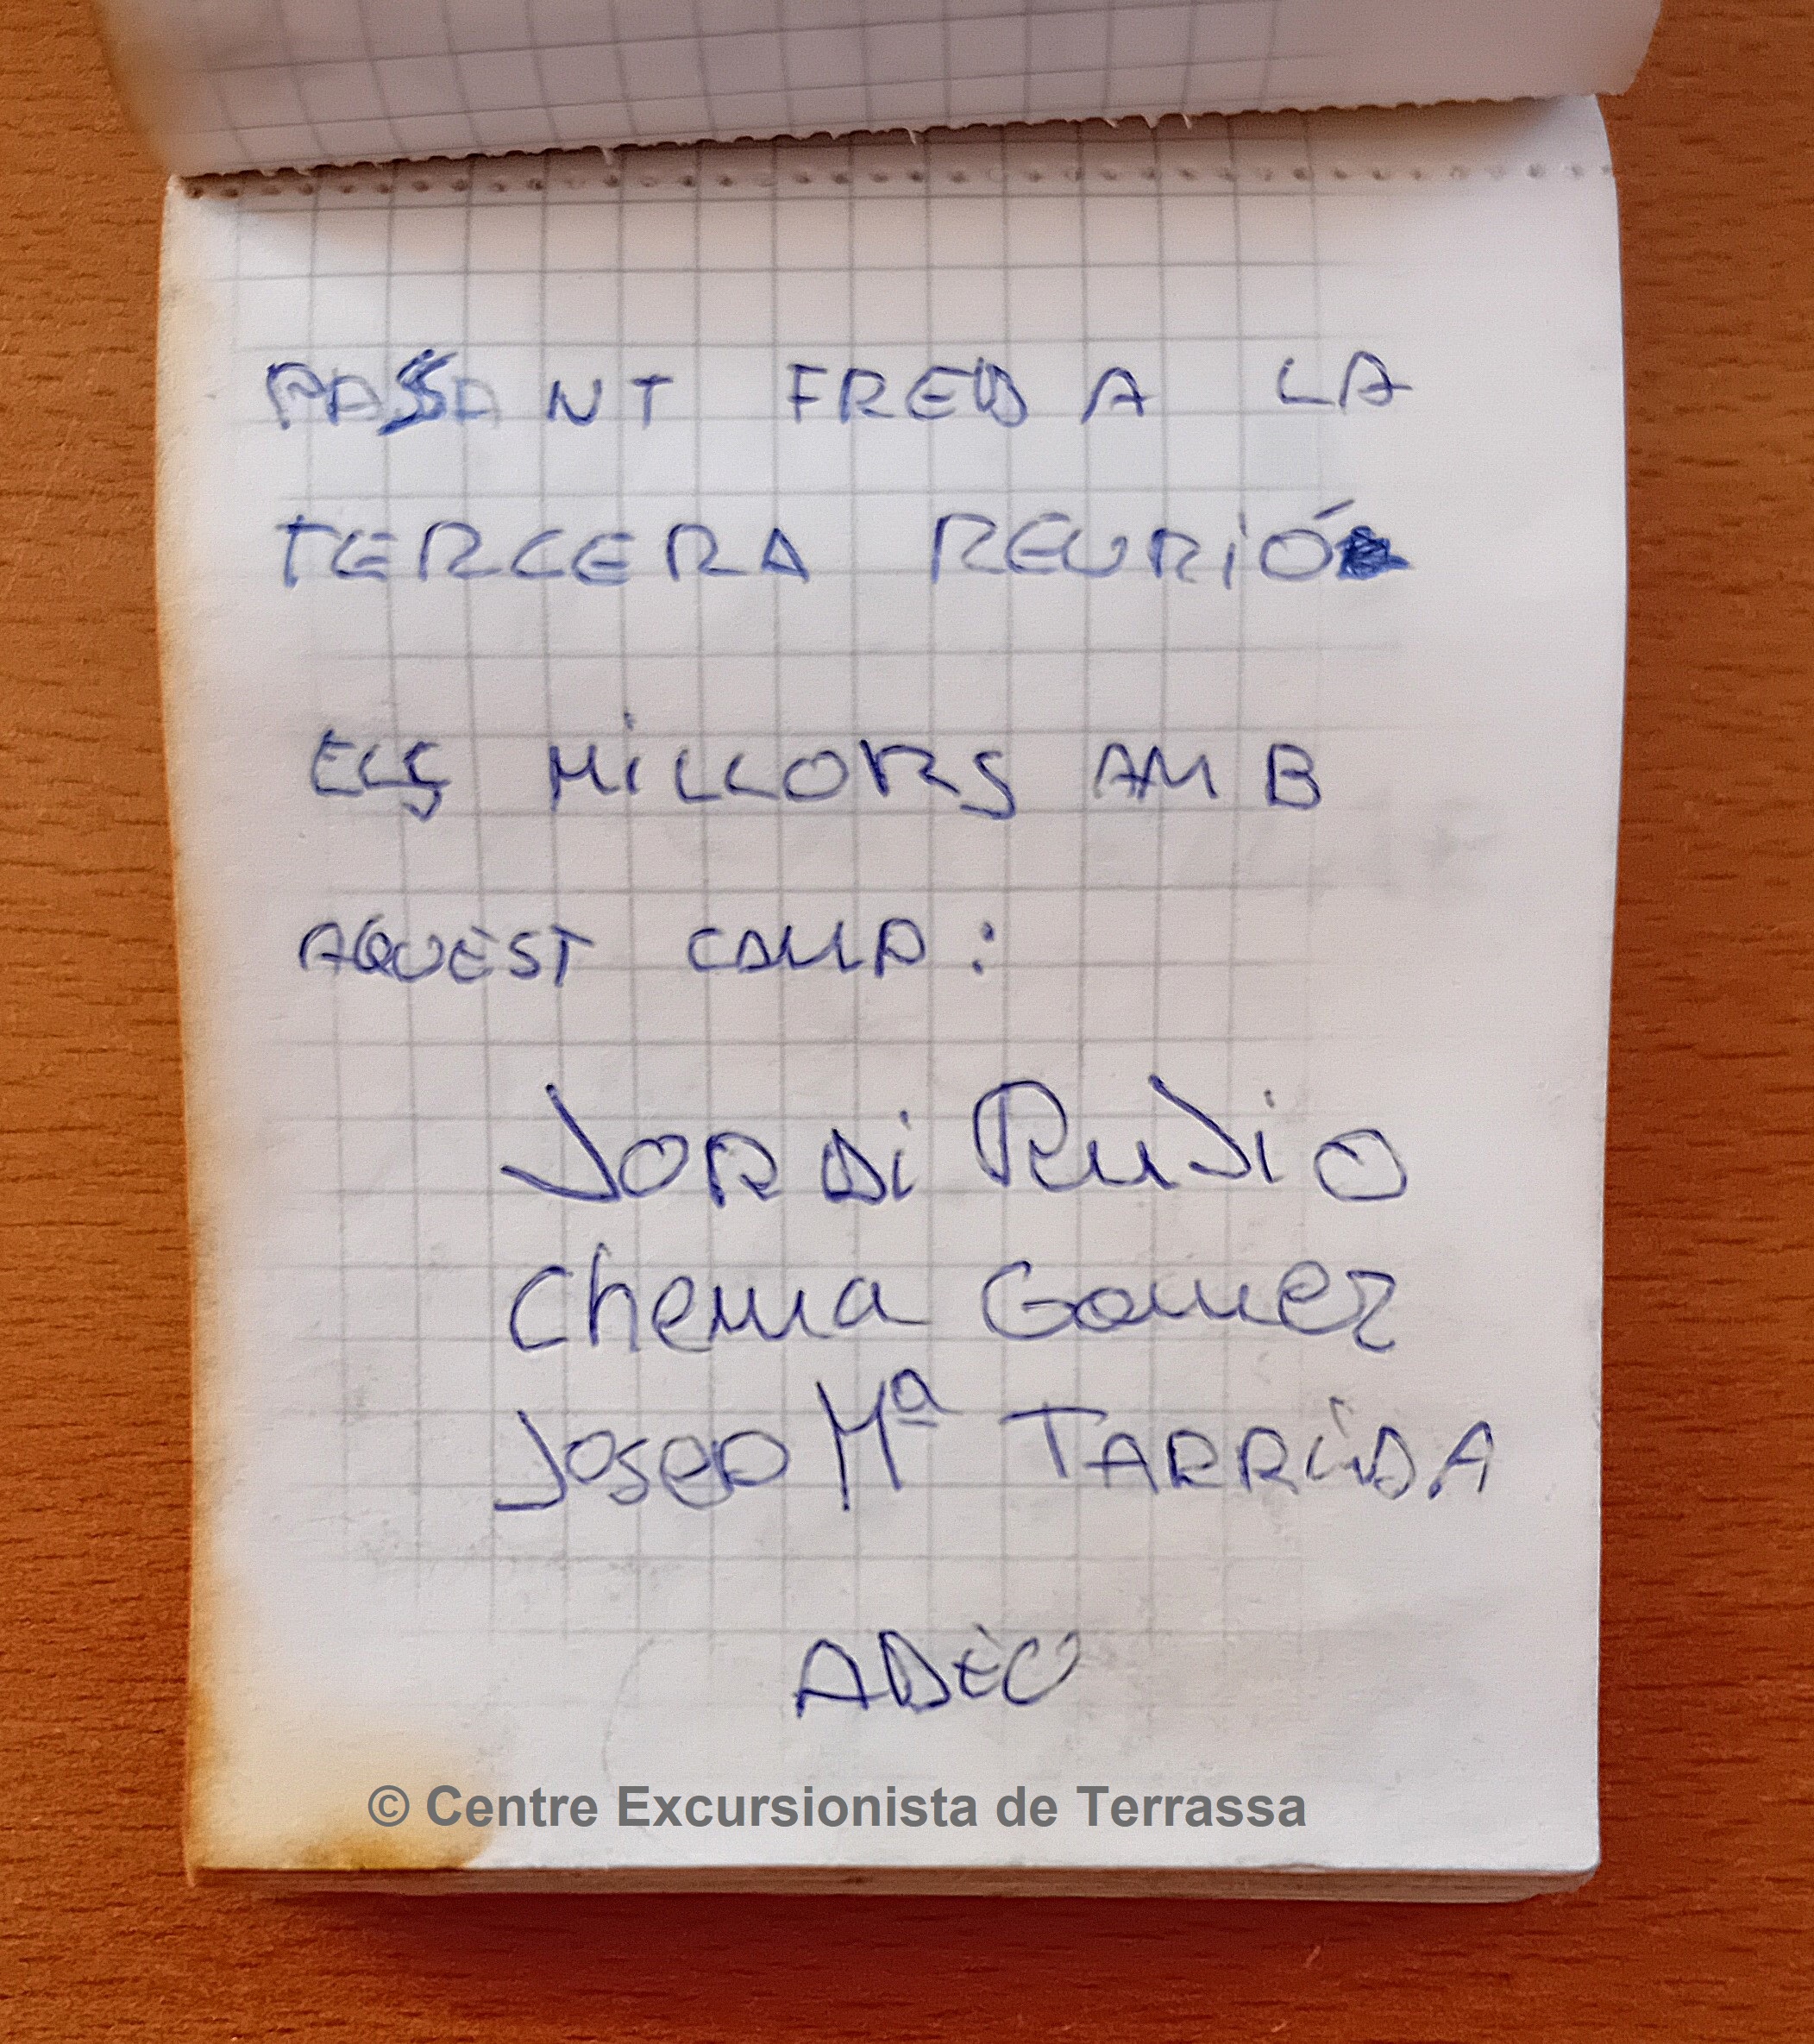 PASSANT FRED A LA
TERCERA REUNIÓ
ELS MILLORS AMB
AQUEST CAMP:
JORDi RUJiO
Chema Gomez
Josep Mª TARRiDA
ADÉU
© Centre Excursionista de Terrassa